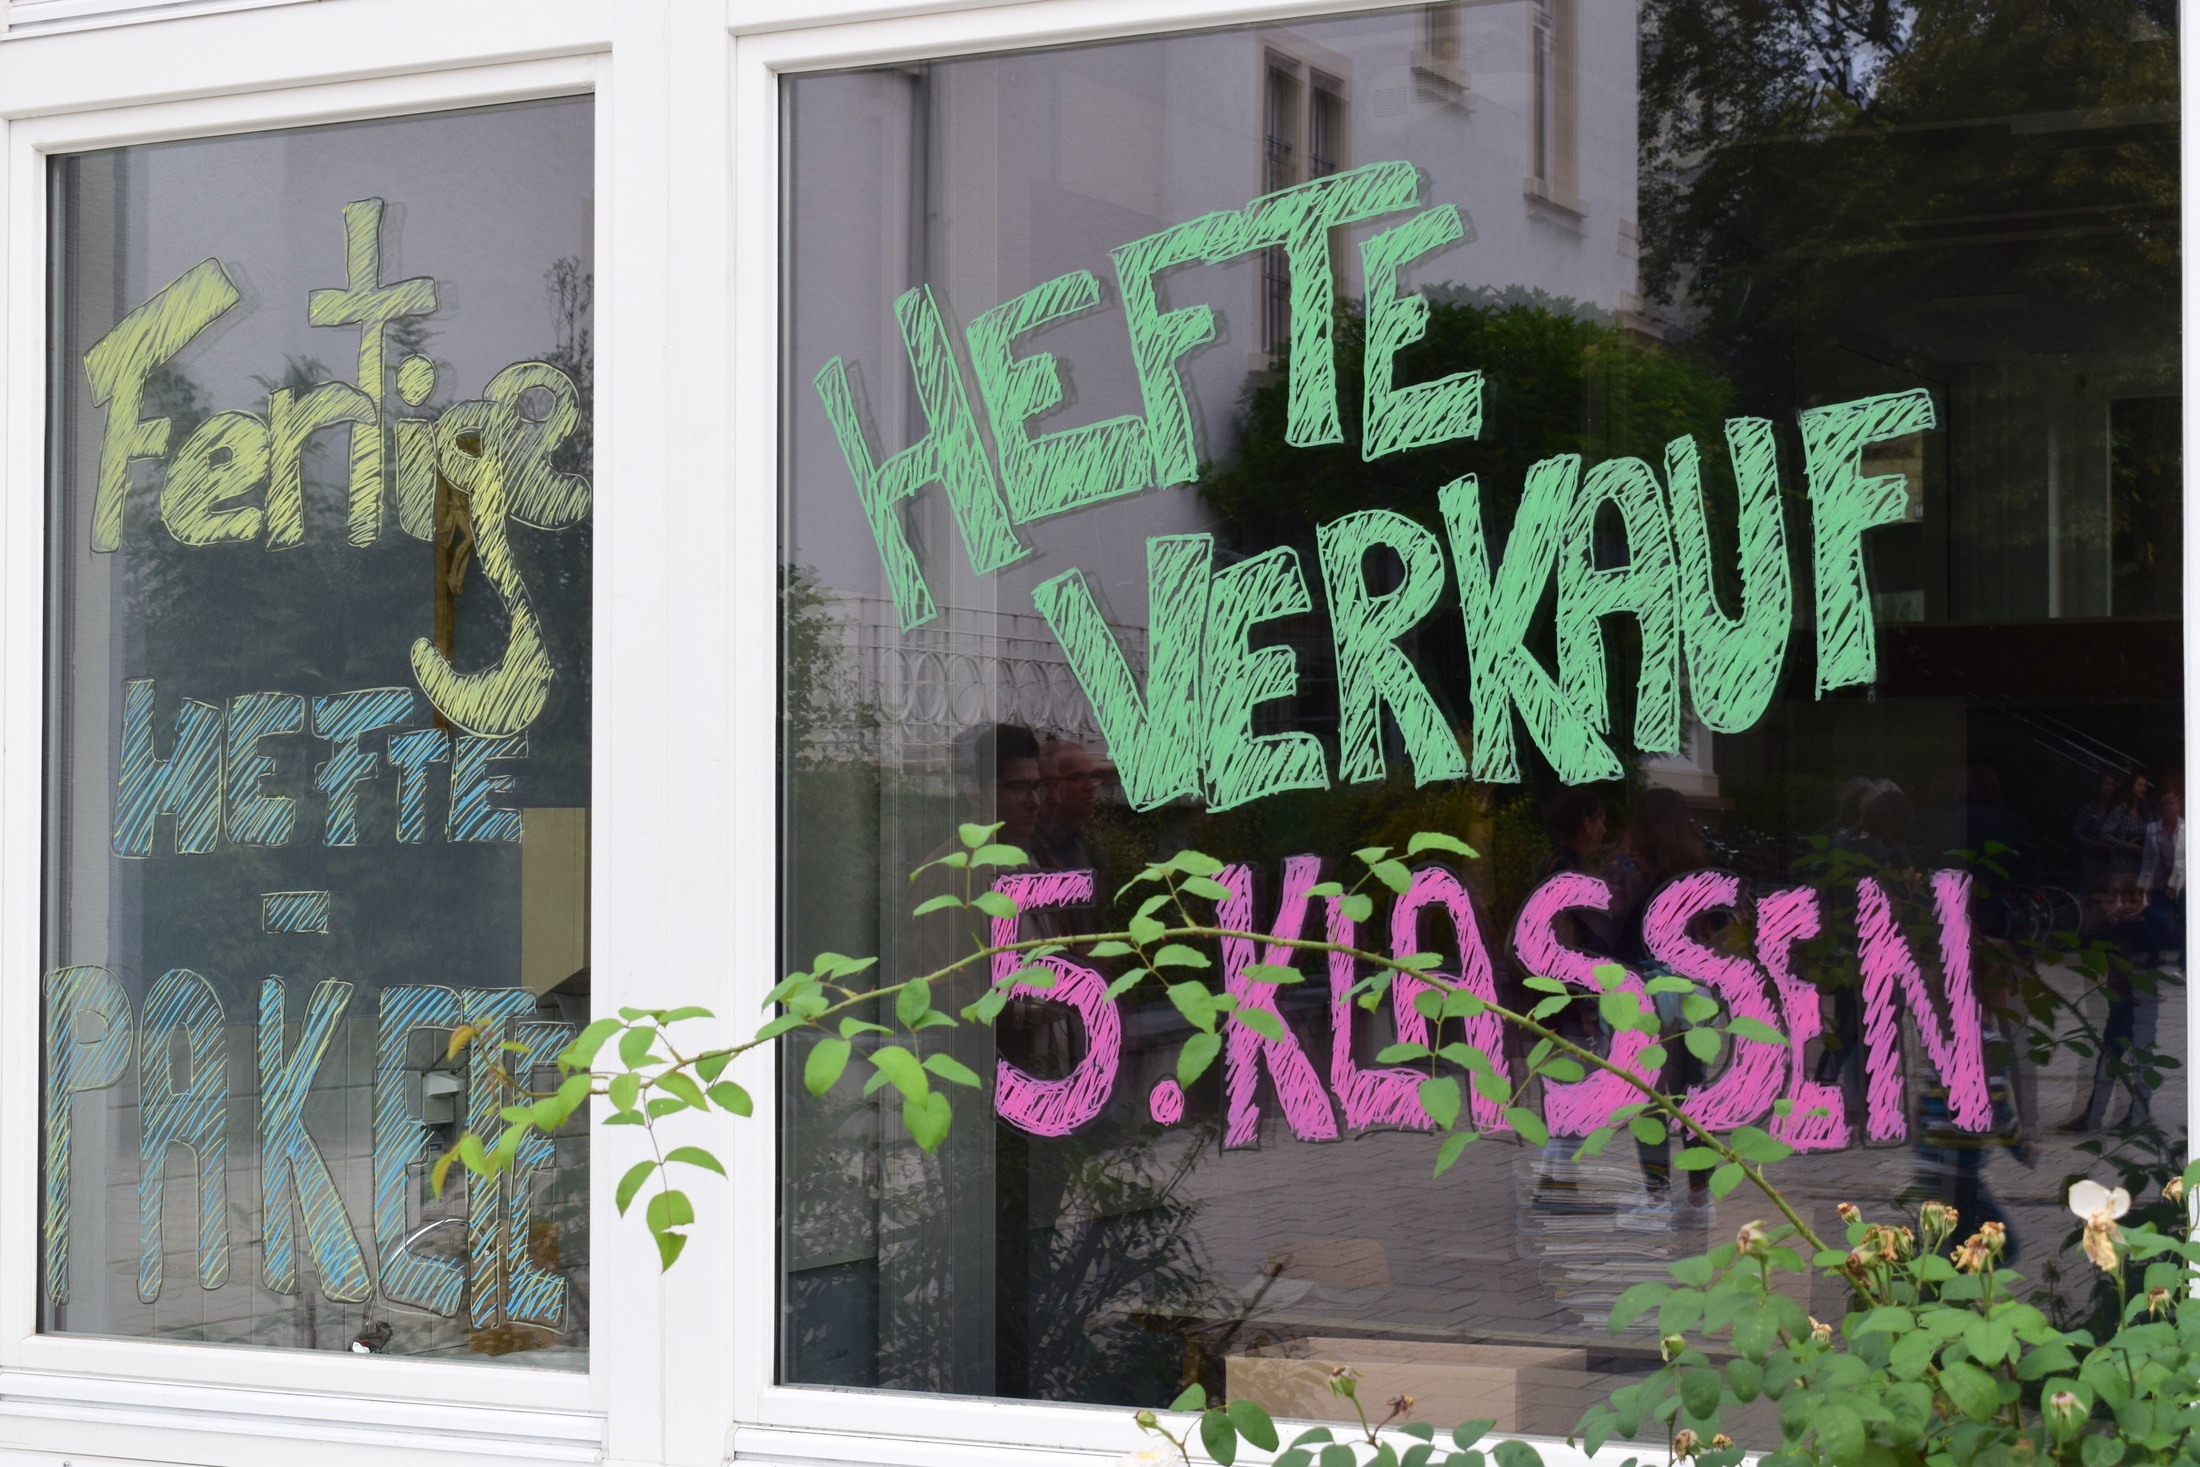 Fertige
HEFTE
-
PAKETE
HEFTE
VERKAUF
5. KLASSEN